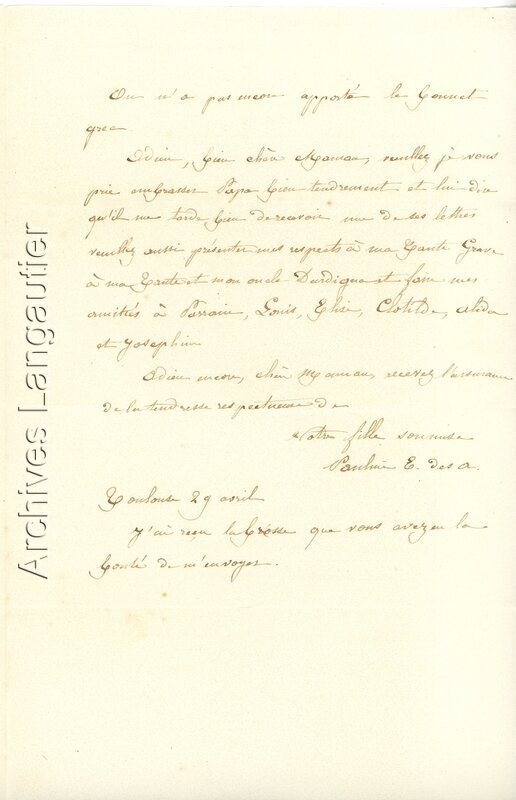 On n'a pas encore apporté le bonnet
grec
Adieu, bien chère Maman, veuillez je vous
prie embrasser Papa bien tendrement et lui dire
qu'il me tarde bien de recevoir une de ses lettres
veuillez aussi présenter mes respects à ma tante Grave
à ma tante et mon oncle Dardignac et faire mes
amitiés à Parrain, Louis, Elise, Clotilde, Alida
et Joséphine
Adieu encore, chère Maman, recevez l'assurance
de la tendresse respectueuse de
Votre fille soumise
Pauline E. des a.
Toulouse 29 avril
J'ai reçu la brosse que vous avez eu la
bonté de m'envoyer.
Archives Langautier